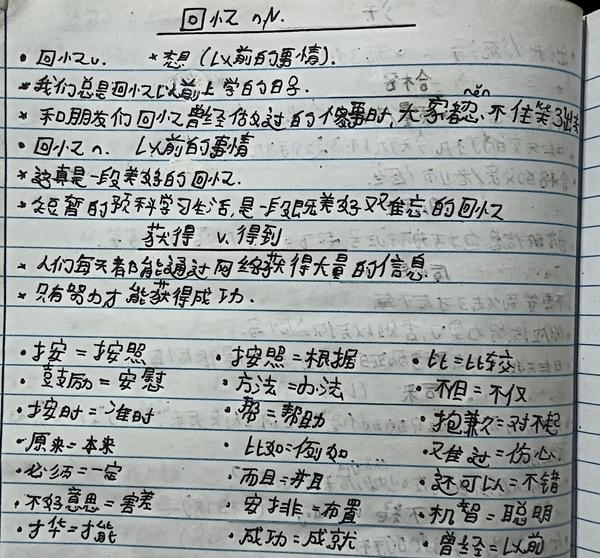 回忆 n,v.
• 回忆 v. * 想 (以前的事情).
* 我们总是回忆以前上学的日子.
* 和朋友们回忆曾经做过的傻事时, 大家都忍不住笑了出来
• 回忆 n. 以前的事情
* 这真是一段美好的回忆.
* 短暂的预科学习生活, 是一段既美好又难忘的回忆
获得 v. 得到
* 人们每天都能通过网络获得大量的信息
* 只有努力才能获得成功.
• 按 = 按照 • 按照 = 根据 • 比 = 比较
• 鼓励 = 安慰 • 方法 = 办法 • 不但 = 不仅
• 按时 = 准时 • 帮 = 帮助 • 抱歉 = 对不起
• 原来 = 本来 • 比如 = 例如 • 难过 = 伤心
• 必须 = 一定 • 而且 = 并且 • 还可以 = 不错
• 不好意思 = 害羞 • 安排 = 布置 • 机智 = 聪明
• 才华 = 才能 • 成功 = 成就 • 曾经 = 以前